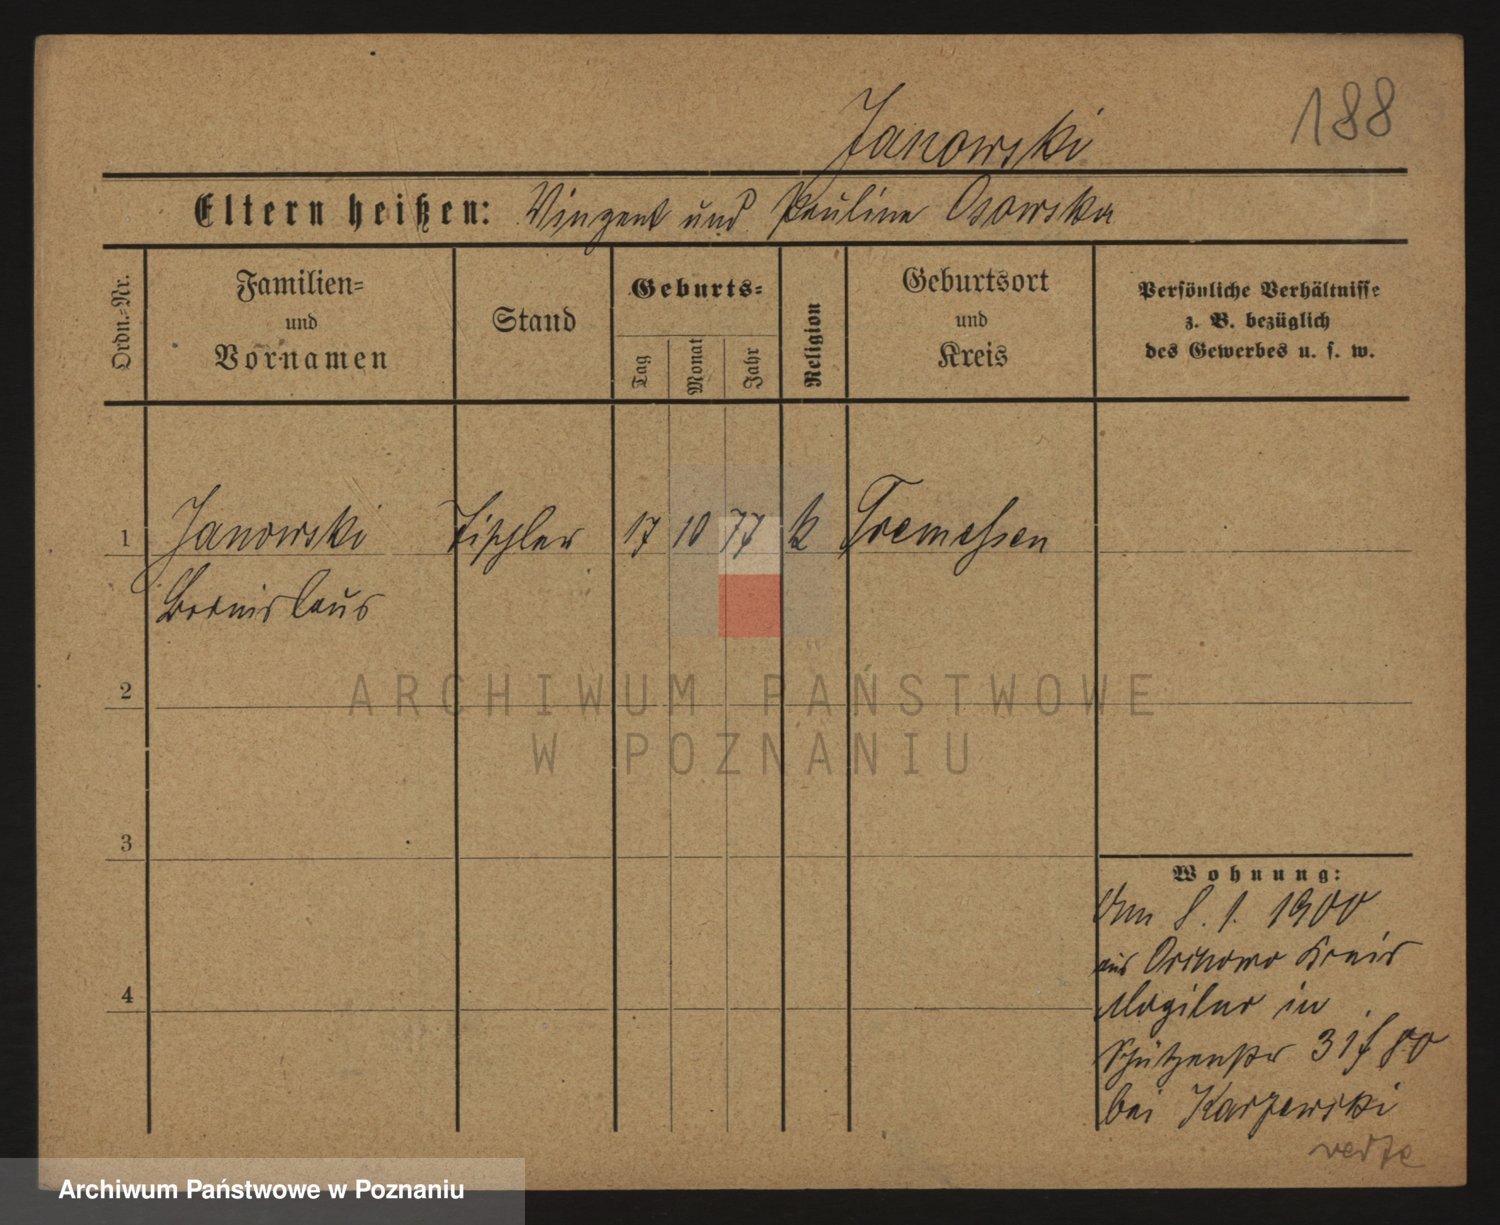 188
Janowski
Eltern heißen: Vinzent und Pauline Osowska
Ordn.=Nr.
Familien=
und
Vornamen
Stand
Geburts=
Tag
Monat
Jahr
Religion
Geburtsort
und
Kreis
Persönliche Verhältnisse
z. B. bezüglich
des Gewerbes u. s. w.
1 Janowski Tischler 17 10 77 k Tremessen
Bronislaus
2
3
4
Wohnung:
Am 8. 1. 1900
aus Kreis
Mogilno in
Schützenstr 31
bei Karzewski
verte
ARCHIWUM PAŃSTWOWE
W POZNANIU
Archiwum Państwowe w Poznaniu